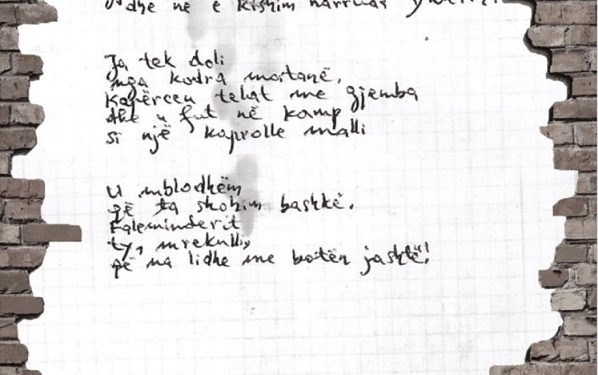 dhe ne e kishim harruar
Ja tek doli
nga kodra matanë,
Kapërceu telat me gjemba
dhe u fut në kamp
si një kaprolle malli
U mblodhëm
që ta shohim bashkë.
Faleminderit
ty, mrekulli,
që na lidhe me botën jashtë!